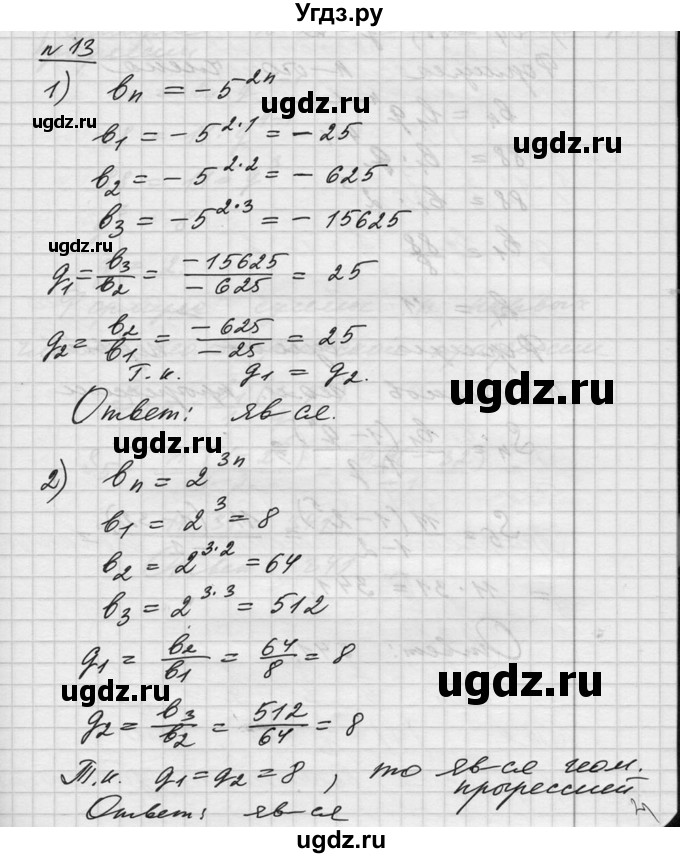 Угдз.ру
№ 13
1) bₙ = -5⁻²ⁿ
ugdz.ru
ugdz.ru
b₁ = -5²·¹ = -25
ugdz.ru
b₂ = -5²·² = -625
b₃ = -5²·³ = -15625
ugdz.ru
g₁ = b₃/b₂ = -15625/-625 = 25
g₂ = b₂/b₁ = -625/-25 = 25
Т.к. g₁ = g₂.
ugdz.ru
Ответ: яв-ся.
ugdz.ru
2) bₙ = 2³ⁿ
b₁ = 2³ = 8
b₂ = 2³·² = 64
b₃ = 2³·³ = 512
g₁ = b₂/b₁ = 64/8 = 8
ugdz.ru
ugdz.ru
g₂ = b₃/b₂ = 512/64 = 8
Т.к. g₁ = g₂ = 8, то яв-ся геом.
прогрессией
Ответ: яв-ся
ugdz.ru